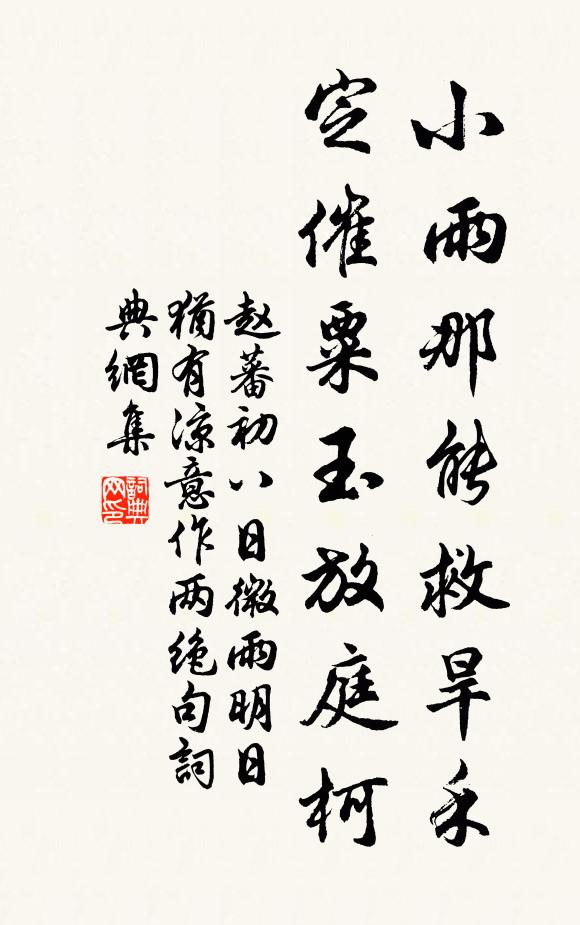 小雨那能救旱禾
定催粟玉放庭柯
赵蕃初八日微雨明日
猶有凉意作两绝句詞
典網集
詞典网印